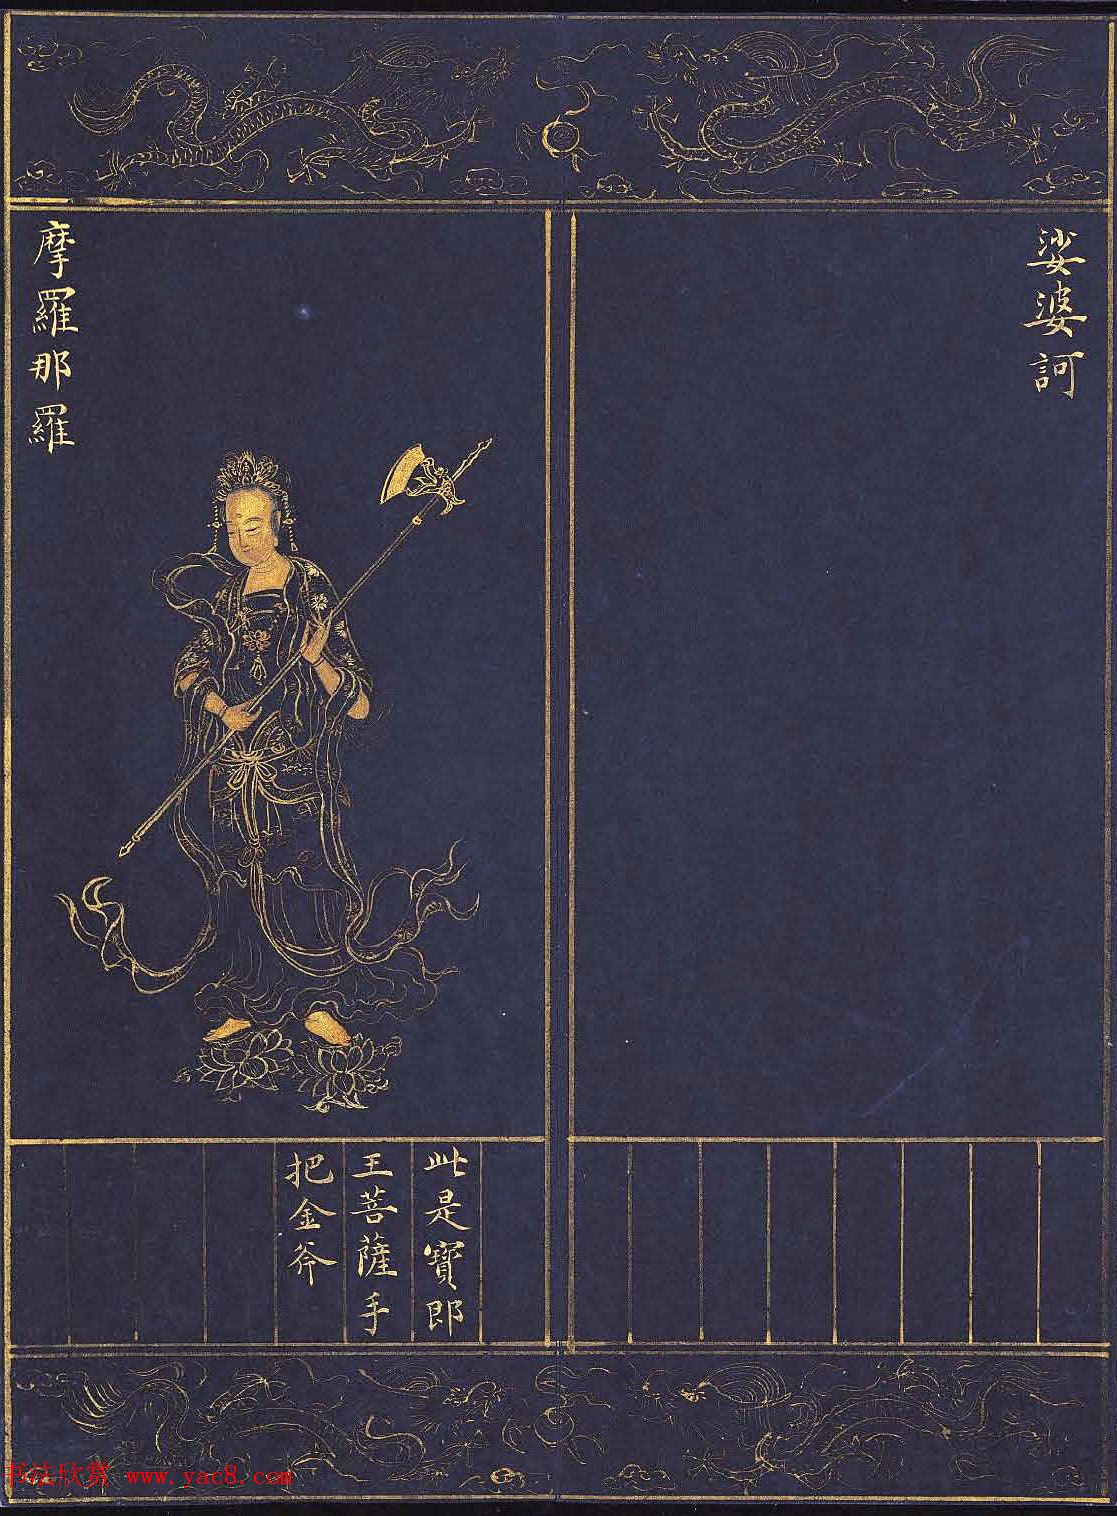 娑婆訶
摩羅那羅
此是寶郎
王菩薩手
把金斧
书法欣赏 www.yac8.com